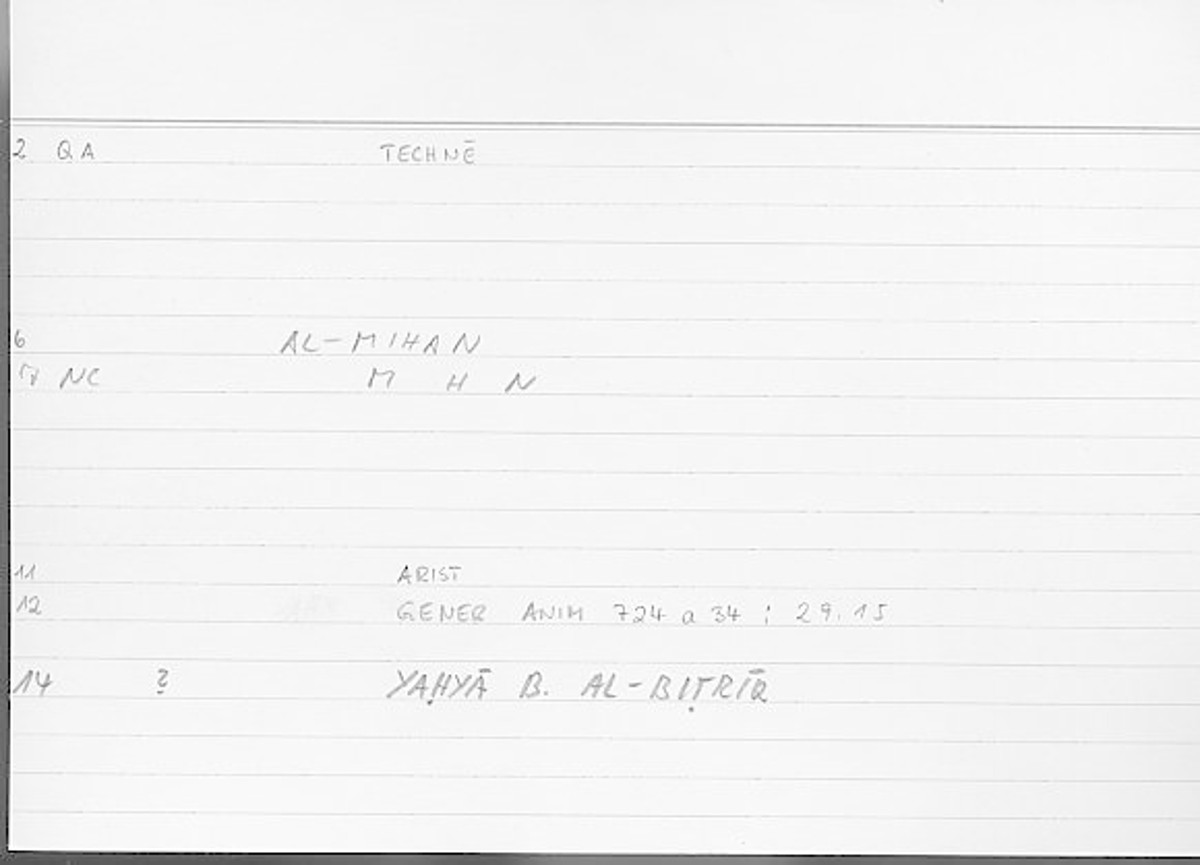 2 QA TECHNĒ
6 AL-MIHAN
NC M H N
11 ARIST
12 GENER ANIM 724 a 34 ; 29.15
14 ? YAḤYĀ B. AL-BIṬRĪQ